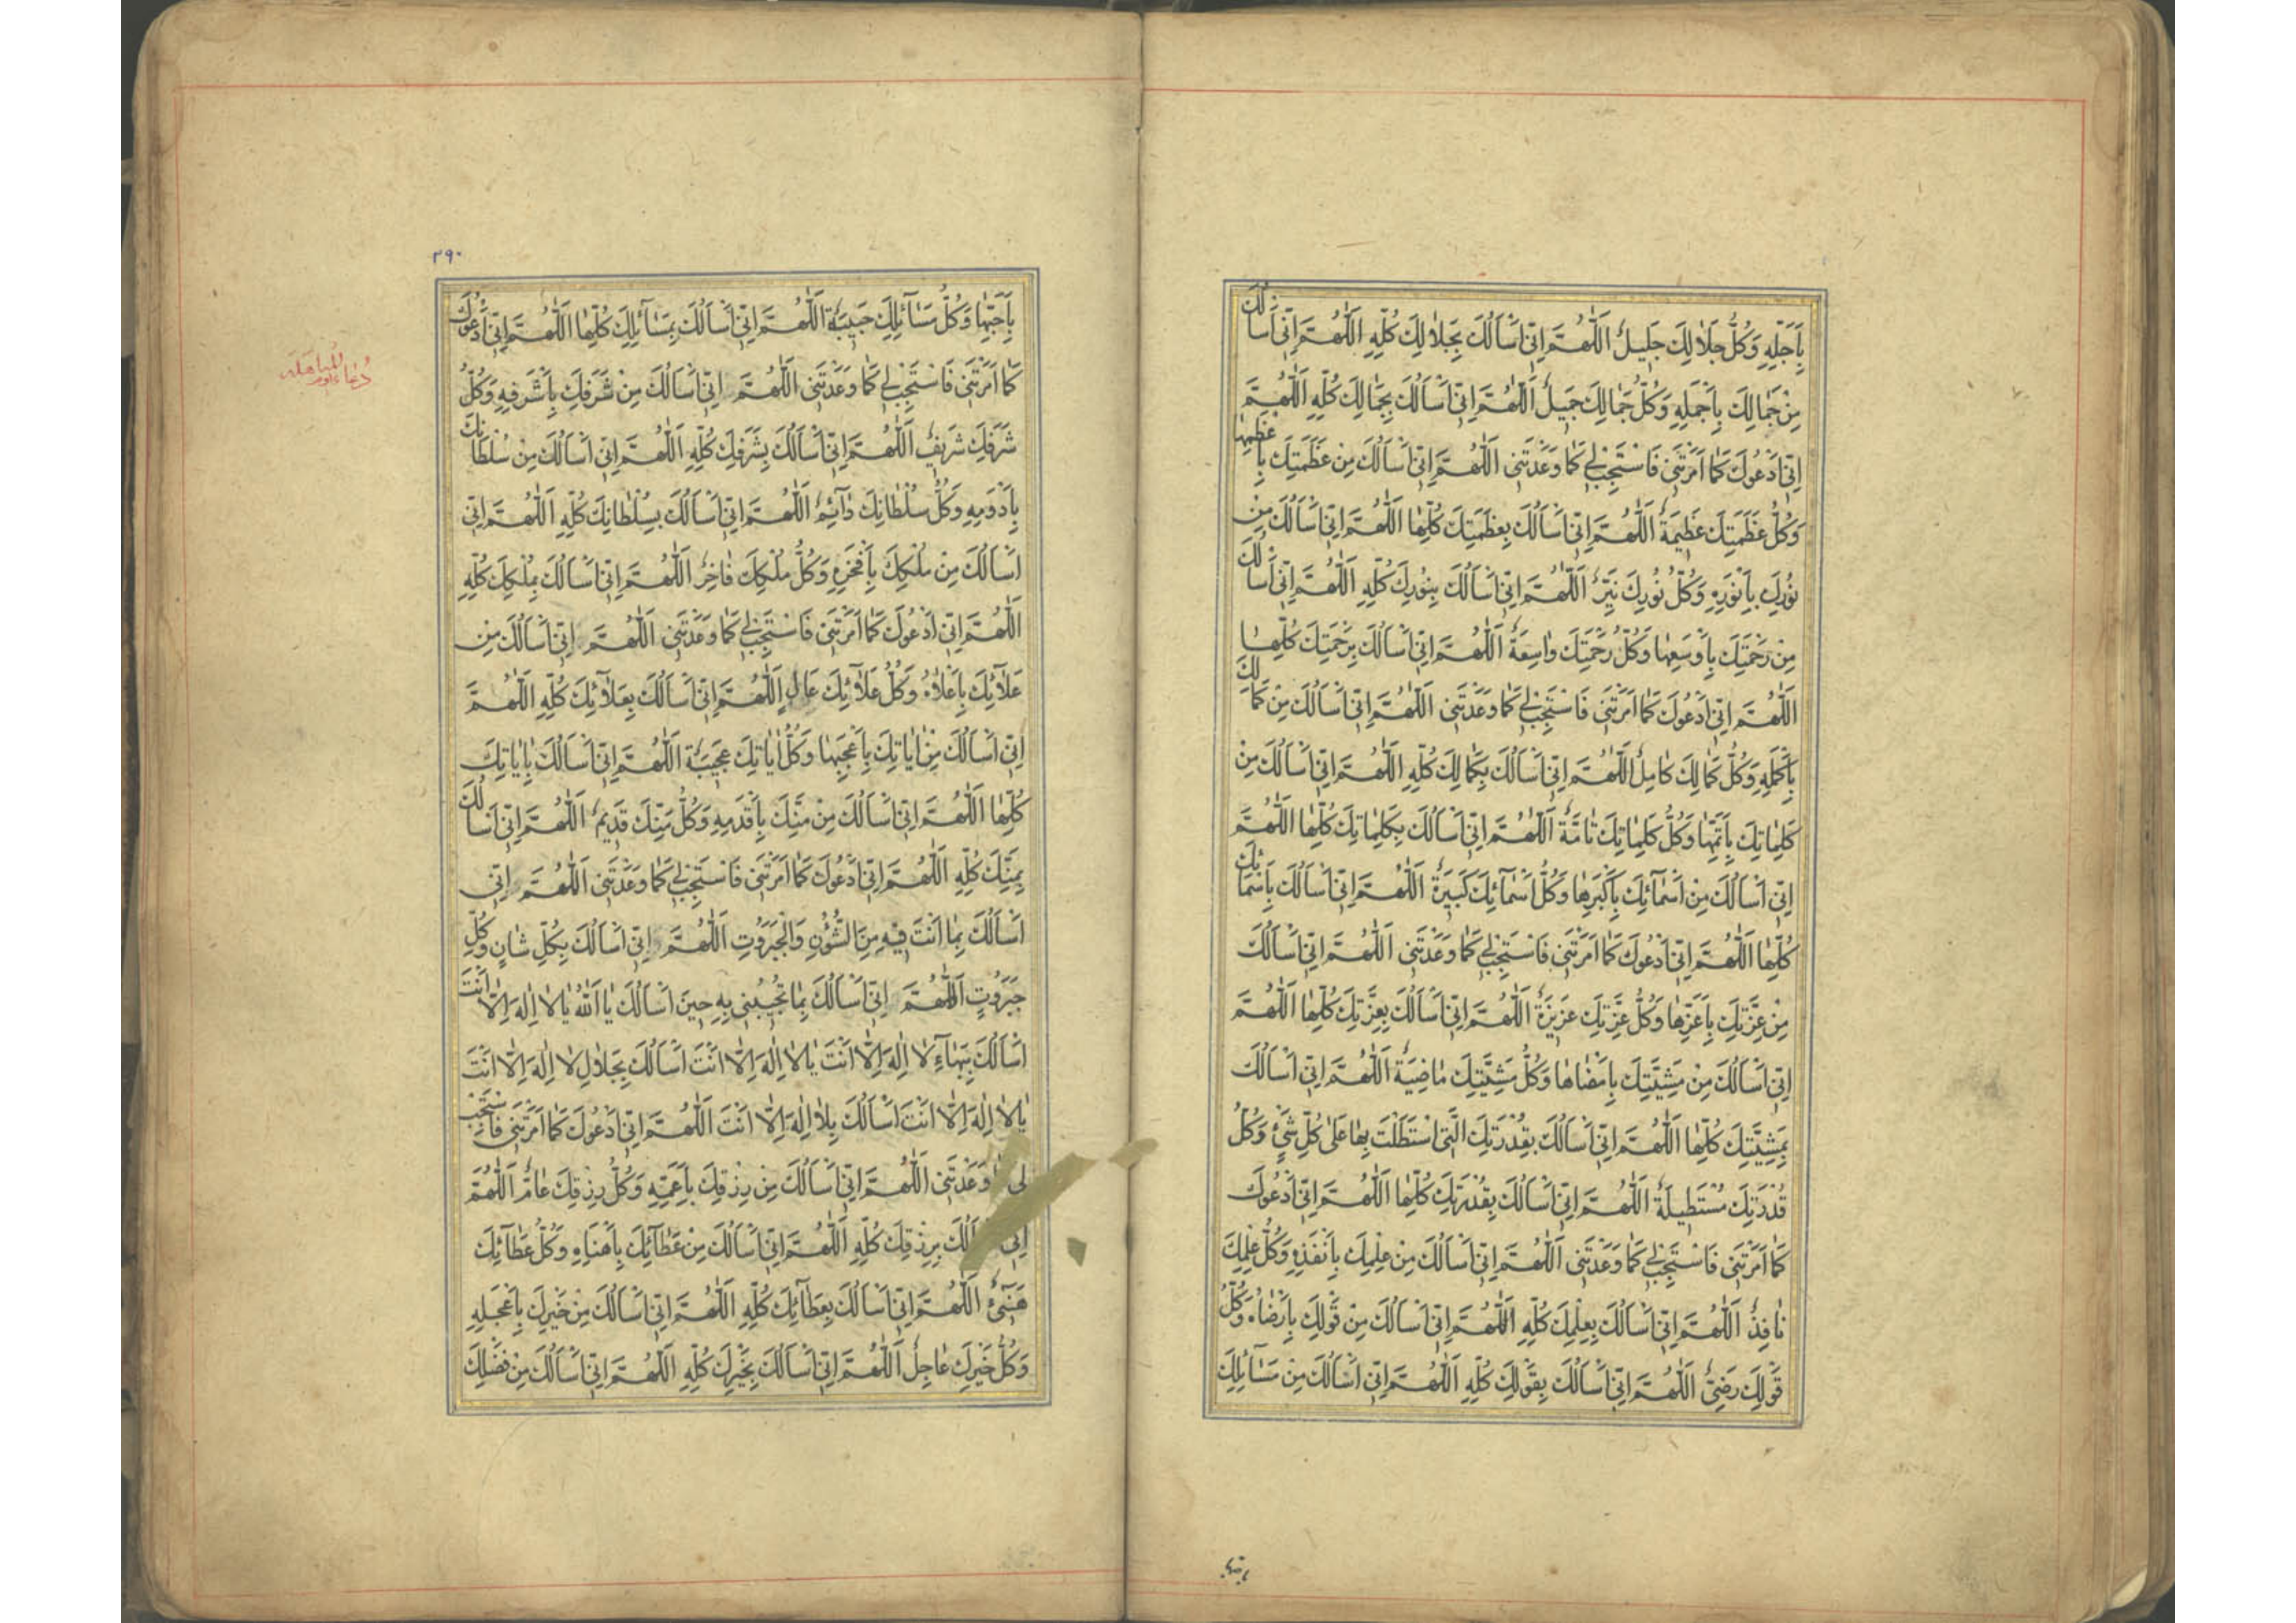 بِاَجَلِّهِ وَكُلُّ جَلَالِكَ جَلِيلٌ اَللّٰهُمَّ اِنّى اَسْاَلُكَ بِجَلَالِكَ كُلِّهِ اَللّٰهُمَّ اِنّى اَسْاَلُكَ
مِنْ جَمَالِكَ بِاَجْمَلِهِ وَكُلُّ جَمَالِكَ جَمِيلٌ اَللّٰهُمَّ اِنّى اَسْاَلُكَ بِجَمَالِكَ كُلِّهِ اَللّٰهُمَّ
اِنّى اَدْعُوكَ كَمَا اَمَرْتَنِى فَاسْتَجِبْ لِى كَمَا وَعَدْتَنِى اَللّٰهُمَّ اِنّى اَسْاَلُكَ مِنْ عَظَمَتِكَ بِاَعْظَمِهَا
وَكُلُّ عَظَمَتِكَ عَظِيمَةٌ اَللّٰهُمَّ اِنّى اَسْاَلُكَ بِعَظَمَتِكَ كُلِّهَا اَللّٰهُمَّ اِنّى اَسْاَلُكَ مِنْ
نُورِكَ بِاَنْوَرِهِ وَكُلُّ نُورِكَ نَيِّرٌ اَللّٰهُمَّ اِنّى اَسْاَلُكَ بِنُورِكَ كُلِّهِ اَللّٰهُمَّ اِنّى اَسْاَلُكَ
مِنْ رَحْمَتِكَ بِاَوْسَعِهَا وَكُلُّ رَحْمَتِكَ وَاسِعَةٌ اَللّٰهُمَّ اِنّى اَسْاَلُكَ بِرَحْمَتِكَ كُلِّهَا
اَللّٰهُمَّ اِنّى اَدْعُوكَ كَمَا اَمَرْتَنِى فَاسْتَجِبْ لِى كَمَا وَعَدْتَنِى اَللّٰهُمَّ اِنّى اَسْاَلُكَ مِنْ كَمَالِكَ
بِاَكْمَلِهِ وَكُلُّ كَمَالِكَ كَامِلٌ اَللّٰهُمَّ اِنّى اَسْاَلُكَ بِكَمَالِكَ كُلِّهِ اَللّٰهُمَّ اِنّى اَسْاَلُكَ مِنْ
كَلِمَاتِكَ بِاَتَمِّهَا وَكُلُّ كَلِمَاتِكَ تَامَّةٌ اَللّٰهُمَّ اِنّى اَسْاَلُكَ بِكَلِمَاتِكَ كُلِّهَا اَللّٰهُمَّ
اِنّى اَسْاَلُكَ مِنْ اَسْمَآئِكَ بِاَكْبَرِهَا وَكُلُّ اَسْمَآئِكَ كَبِيرَةٌ اَللّٰهُمَّ اِنّى اَسْاَلُكَ بِاَسْمَائِكَ
كُلِّهَا اَللّٰهُمَّ اِنّى اَدْعُوكَ كَمَا اَمَرْتَنِى فَاسْتَجِبْ لِى كَمَا وَعَدْتَنِى اَللّٰهُمَّ اِنّى اَسْاَلُكَ
مِنْ عِزَّتِكَ بِاَعَزِّهَا وَكُلُّ عِزَّتِكَ عَزِيزَةٌ اَللّٰهُمَّ اِنّى اَسْاَلُكَ بِعِزَّتِكَ كُلِّهَا اَللّٰهُمَّ
اِنّى اَسْاَلُكَ مِنْ مَشِيَّتِكَ بِاَمْضَاهَا وَكُلُّ مَشِيَّتِكَ مَاضِيَةٌ اَللّٰهُمَّ اِنّى اَسْاَلُكَ
بِمَشِيَّتِكَ كُلِّهَا اَللّٰهُمَّ اِنّى اَسْاَلُكَ بِقُدْرَتِكَ الَّتِى اسْتَطَلْتَ بِهَا عَلٰى كُلِّ شَىْءٍ وَكُلُّ
قُدْرَتِكَ مُسْتَطِيلَةٌ اَللّٰهُمَّ اِنّى اَسْاَلُكَ بِقُدْرَتِكَ كُلِّهَا اَللّٰهُمَّ اِنّى اَدْعُوكَ
كَمَا اَمَرْتَنِى فَاسْتَجِبْ لِى كَمَا وَعَدْتَنِى اَللّٰهُمَّ اِنّى اَسْاَلُكَ مِنْ عِلْمِكَ بِاَنْفَذِهِ وَكُلُّ عِلْمِكَ
نَافِذٌ اَللّٰهُمَّ اِنّى اَسْاَلُكَ بِعِلْمِكَ كُلِّهِ اَللّٰهُمَّ اِنّى اَسْاَلُكَ مِنْ قَوْلِكَ بِاَرْضَاهُ وَكُلُّ
قَوْلِكَ رَضِىٌّ اَللّٰهُمَّ اِنّى اَسْاَلُكَ بِقَوْلِكَ كُلِّهِ اَللّٰهُمَّ اِنّى اَسْاَلُكَ مِنْ مَسَآئِلِكَ
باحبها
٢٩٠
بِاَحَبِّهَا وَكُلُّ مَسَآئِلِكَ حَبِيبَةٌ اَللّٰهُمَّ اِنّى اَسْاَلُكَ بِمَسَآئِلِكَ كُلِّهَا اَللّٰهُمَّ اِنّى اَدْعُوكَ
كَمَا اَمَرْتَنِى فَاسْتَجِبْ لِى كَمَا وَعَدْتَنِى اَللّٰهُمَّ اِنّى اَسْاَلُكَ مِنْ شَرَفِكَ بِاَشْرَفِهِ وَكُلُّ
شَرَفِكَ شَرِيفٌ اَللّٰهُمَّ اِنّى اَسْاَلُكَ بِشَرَفِكَ كُلِّهِ اَللّٰهُمَّ اِنّى اَسْاَلُكَ مِنْ سُلْطَانِكَ
بِاَدْوَمِهِ وَكُلُّ سُلْطَانِكَ دَآئِمٌ اَللّٰهُمَّ اِنّى اَسْاَلُكَ بِسُلْطَانِكَ كُلِّهِ اَللّٰهُمَّ اِنّى
اَسْاَلُكَ مِنْ مُلْكِكَ بِاَفْخَرِهِ وَكُلُّ مُلْكِكَ فَاخِرٌ اَللّٰهُمَّ اِنّى اَسْاَلُكَ بِمُلْكِكَ كُلِّهِ
اَللّٰهُمَّ اِنّى اَدْعُوكَ كَمَا اَمَرْتَنِى فَاسْتَجِبْ لِى كَمَا وَعَدْتَنِى اَللّٰهُمَّ اِنّى اَسْاَلُكَ مِنْ
عَلَآئِكَ بِاَعْلَاهُ وَكُلُّ عَلَآئِكَ عَالٍ اَللّٰهُمَّ اِنّى اَسْاَلُكَ بِعَلَآئِكَ كُلِّهِ اَللّٰهُمَّ
اِنّى اَسْاَلُكَ مِنْ اٰيَاتِكَ بِاَعْجَبِهَا وَكُلُّ اٰيَاتِكَ عَجِيبَةٌ اَللّٰهُمَّ اِنّى اَسْاَلُكَ بِاٰيَاتِكَ
كُلِّهَا اَللّٰهُمَّ اِنّى اَسْاَلُكَ مِنْ مَنِّكَ بِاَقْدَمِهِ وَكُلُّ مَنِّكَ قَدِيمٌ اَللّٰهُمَّ اِنّى اَسْاَلُكَ
بِمَنِّكَ كُلِّهِ اَللّٰهُمَّ اِنّى اَدْعُوكَ كَمَا اَمَرْتَنِى فَاسْتَجِبْ لِى كَمَا وَعَدْتَنِى اَللّٰهُمَّ اِنّى
اَسْاَلُكَ بِمَا اَنْتَ فِيهِ مِنَ الشُّؤُنِ وَالْجَبَرُوتِ اَللّٰهُمَّ اِنّى اَسْاَلُكَ بِكُلِّ شَانٍ وَكُلِّ
جَبَرُوتٍ اَللّٰهُمَّ اِنّى اَسْاَلُكَ بِمَا تُجِيبُنِى بِهِ حِينَ اَسْاَلُكَ يَا اَللّٰهُ يَا لَا اِلٰهَ اِلَّا اَنْتَ
اَسْاَلُكَ بِبَهَآءِ لَا اِلٰهَ اِلَّا اَنْتَ يَا لَا اِلٰهَ اِلَّا اَنْتَ اَسْاَلُكَ بِجَلَالِ لَا اِلٰهَ اِلَّا اَنْتَ
يَا لَا اِلٰهَ اِلَّا اَنْتَ اَسْاَلُكَ بِلَا اِلٰهَ اِلَّا اَنْتَ اَللّٰهُمَّ اِنّى اَدْعُوكَ كَمَا اَمَرْتَنِى فَاسْتَجِبْ
لِى وَعَدْتَنِى اَللّٰهُمَّ اِنّى اَسْاَلُكَ مِنْ رِزْقِكَ بِاَعَمِّهِ وَكُلُّ رِزْقِكَ عَامٌّ اَللّٰهُمَّ
اِنّى بِرِزْقِكَ كُلِّهِ اَللّٰهُمَّ اِنّى اَسْاَلُكَ مِنْ عَطَآئِكَ بِاَهْنَاهِ وَكُلُّ عَطَآئِكَ
هَنِىءٌ اَللّٰهُمَّ اِنّى اَسْاَلُكَ بِعَطَآئِكَ كُلِّهِ اَللّٰهُمَّ اِنّى اَسْاَلُكَ مِنْ خَيْرِكَ بِاَعْجَلِهِ
وَكُلُّ خَيْرِكَ عَاجِلٌ اَللّٰهُمَّ اِنّى اَسْاَلُكَ بِخَيْرِكَ كُلِّهِ اَللّٰهُمَّ اِنّى اَسْاَلُكَ مِنْ فَضْلِكَ
دُعَاء يوم المباهله